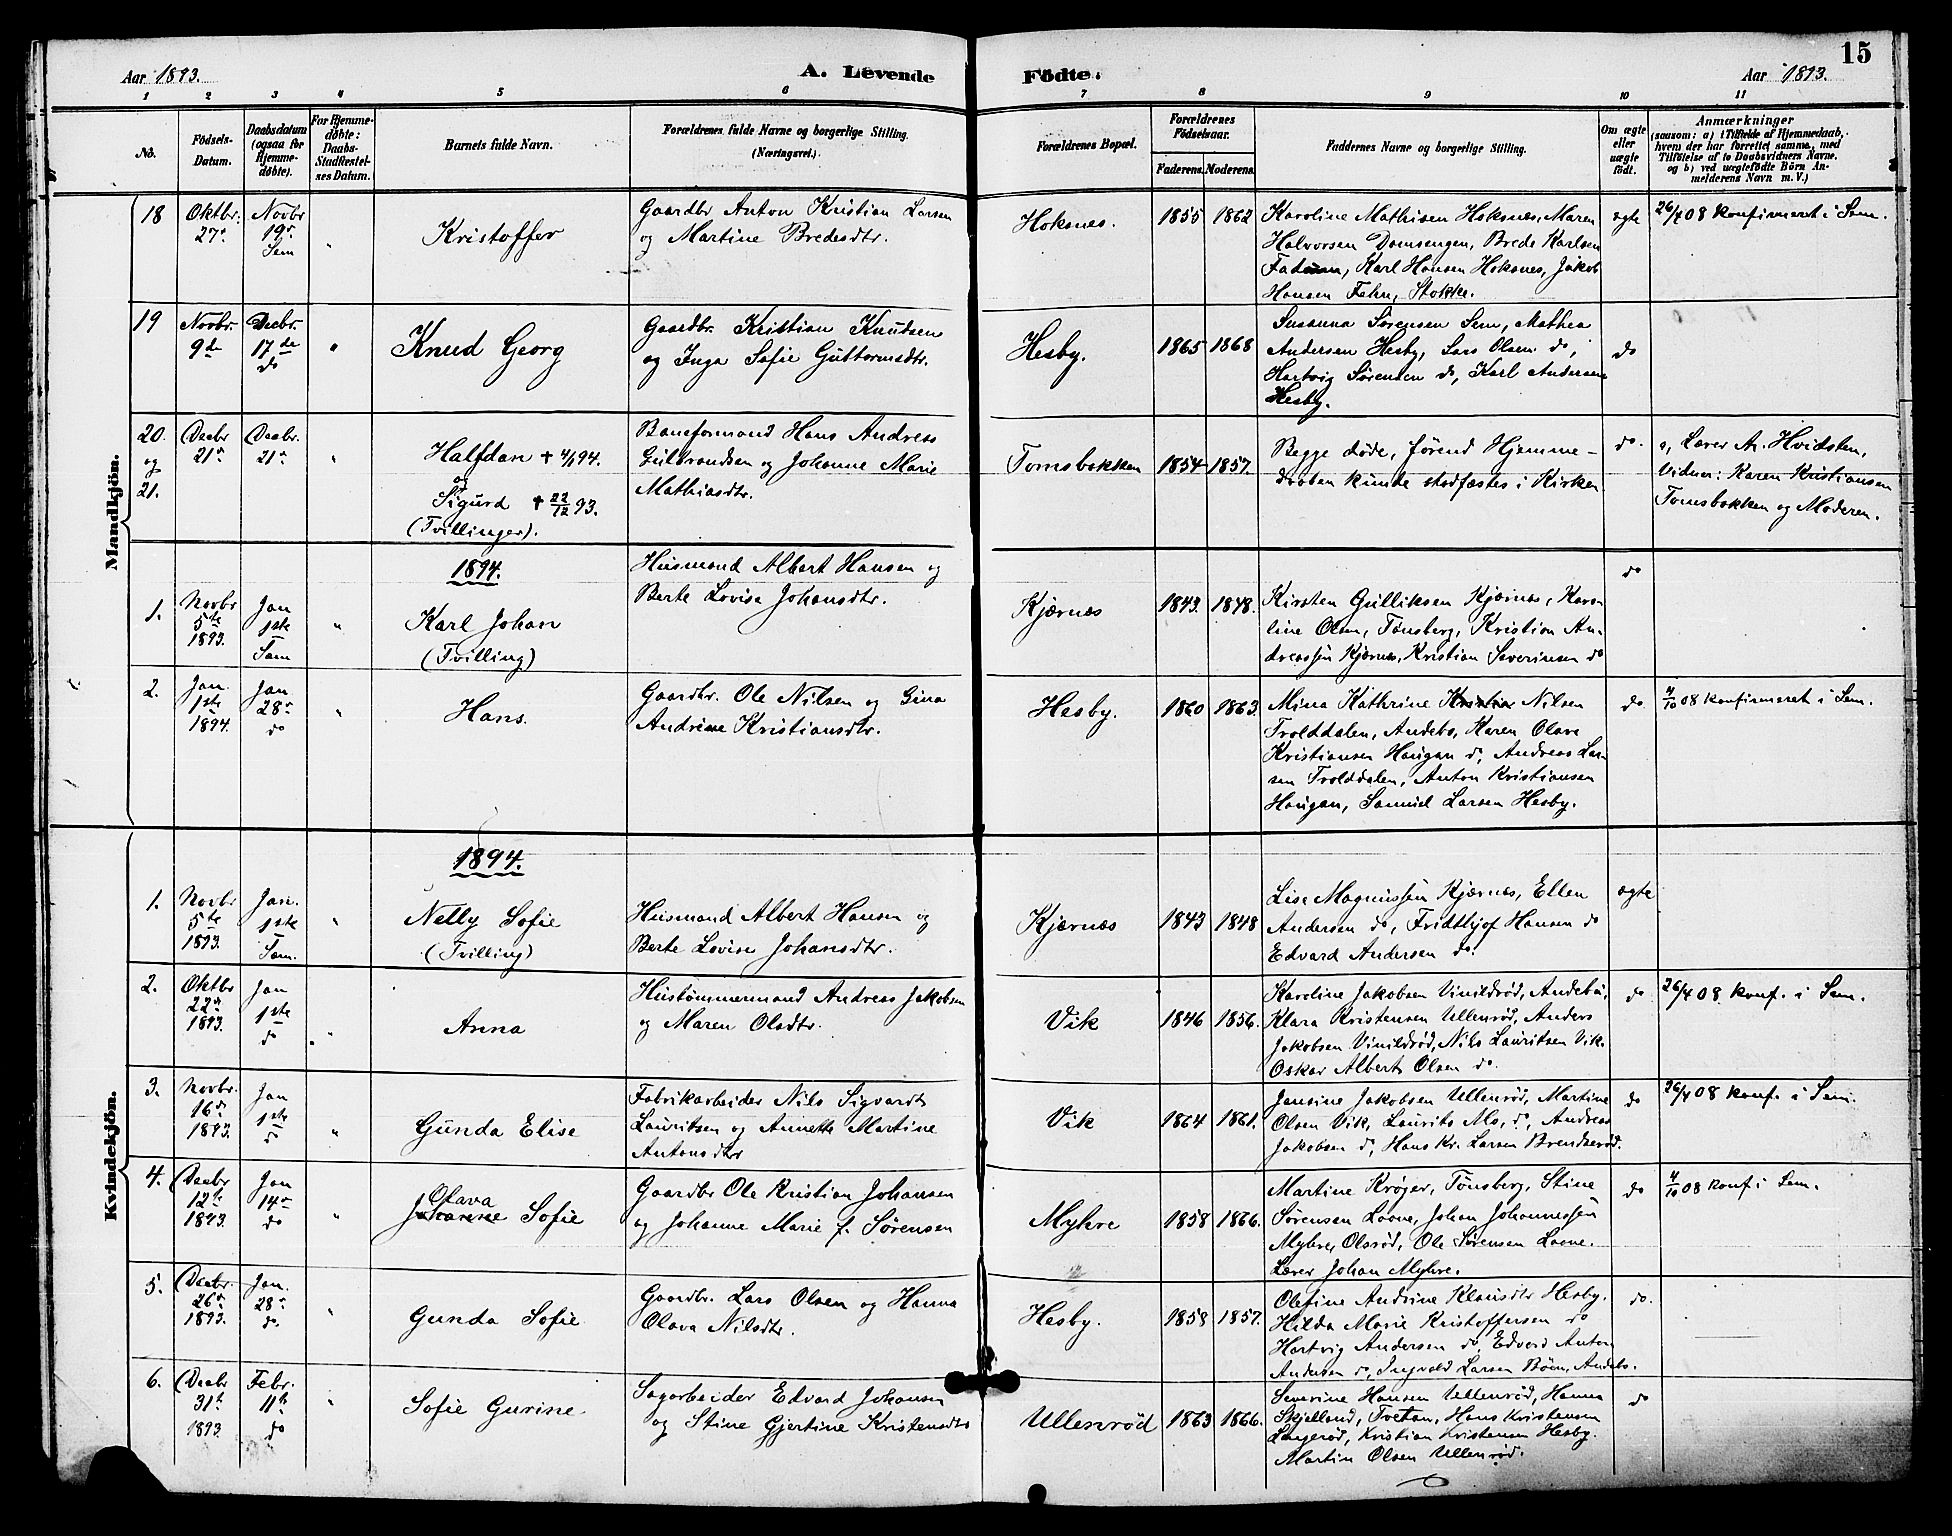 15
Aar 1893.
A. Levende Födte.
Aar 1893.
1 2 3 4 5 6 7 8 9 10 11
No.
Födsels-Datum.
Daabsdatum (ogsaa for Hjemme-döbte).
For Hjemme-döbte: Daabs-Stadfæstel-ses Datum.
Barnets fulde Navn.
Forældrenes fulde Navne og borgerlige Stilling.
(Næringsvei.)
Forældrenes Bopæl.
Forældrenes Födselsaar.
Faderens. Moderens.
Faddernes Navne og borgerlige Stilling.
Om ægte eller uægte födt.
Anmærkninger
(saasom: a) i Tilfælde af Hjemmedaab, hvem der har forrettet samme, med Tilföielse af to Daabsvidners Navne, og b) ved uægtefödte Börn An-melderens Navn m. V.)
Mandkjön.
18
Oktbr. 27de
Novbr 19de Sem
"
Kristoffer
Gaardbr Anton Kristian Larsen
og Martine Bredesdtr.
Hoksnes.
1855 1862
Karoline Mathisen Hoksnes, Maren
Halvorsen Domsengen, Brede Karlsen
Fadum, Karl Hansen Hoksnes, Jakob
Hansen Fehn, Stokke.
ægte
26/4 08 konfirmeret i Sem.
19
Novbr. 9de
Decbr. 17de do
"
Knud Georg
Gaardbr. Kristian Knudsen
og Inga Sofie Guttormsdtr.
Hesby.
1865 1868
Susanna Sørensen Sem, Mathea
Andersen Hesby, Lars Olsen do,
Hartvig Sørensen do, Karl Andersen
Hesby.
do
20. og 21.
Decbr 21de
Decbr. 21de
"
Halfdan + 4/1 94.
og
Sigurd + 22/12 93.
(Tvillinger).
Baneformand Hans Andreas
Gulbrandsen og Johanne Marie
Mathiasdtr.
Tomsbakken
1854 1857.
Begge døde, førend Hjemme-
daaben kunde stadfæstes i Kirken
do.
a, Lærer A. Hvidsten,
Vidner: Karen Kristiansen
Tomsbakken og Moderen.
1894.
1.
Novbr 5te 1893.
Jan 1ste Sem
"
Karl Johan
(Tvilling)
Husmand Albert Hansen og
Berte Lovise Johansdtr.
Kjærnes
1843. 1848.
Kirsten Gulliksen Kjærnes, Karo-
line Olsen, Tønsberg, Kristian An-
dreassen Kjærnes, Kristian Severinsen do
do
2.
Jan. 1ste 1894.
Jan. 28de do
"
Hans.
Gaardbr. Ole Nilsen og Gina
Andrine Kristiansdtr.
Hesby.
1860 1863.
Mina Kathrine Nilsen
Trolddalen, Andebo, Karen Olava
Kristiansen Haugan do, Andreas Lar-
sen Trolddalen, Anton Kristiansen
Haugan, Samuel Larsen Hesby.
do.
4/10 08 konfirmeret i Sem.
Kvindekjön.
1894.
1.
Novbr 5te 1893.
Jan. 1ste Sem.
"
Nelly Sofie
(Tvilling)
Husmand Albert Hansen og
Berte Lovise Johansdtr.
Kjærnes
1843 1848
Lise Magnussen Kjærnes, Ellen
Andersen do, Fridthjof Hansen do
Edvard Andersen do.
ægte
2.
Oktbr 22de 1893.
Jan 1ste do
"
Anna
Hustømmermand Andreas Jakobsen
og Maren Olsdtr.
Vik
1846 1856.
Karoline Jakobsen Vinildrød, Andebu,
Klara Kristensen Ullenrød, Anders
Jakobsen Vinildrød, Nils Lauritsen Vik.
Oskar Albert Olsen do.
do.
26/4 08. konf. i Sem.
3.
Novbr. 16de 1893.
Jan 1ste do
"
Gunda Elise
Fabrikarbeider Nils Sigvardt
Lauritsen og Annette Martine
Antonsdtr
Vik
1864 1861.
Jensine Jakobsen Ullenrød, Martine
Olsen Vik, Laurits Ms, do, Andreas
Jakobsen do, Hans Kr. Larsen Brendsrød.
do
26/4 08 konf. i Sem.
4.
Decbr 12te 1893.
Jan 14de do
"
Olava
Johanne Sofie
Gaardbr Ole Kristian Johansen
og Johanne Marie f. Sørensen
Myhre
1858 1866.
Martine Krøger, Tønsberg, Stine
Sørensen Lovne, Johan Johannessen
Myhre, Olsrød, Ole Sørensen Lovne.
Lærer Johan Myhre.
do
4/10 08 konf i Sem.
5.
Decbr. 26de 1893.
Jan. 28de do.
"
Gunda Sofie
Gaardbr. Lars Olsen og Hanna
Olava Nilsdtr.
Hesby.
1858 1857.
Olefine Andrine Klausdtr Hesby.
Hilda Marie Kristoffersen do
Hartvig Andersen do, Edvard Anton
Andersen do, Ingvald Larsen Bøen, Andebo.
do.
6.
Decbr 31te 1893.
Febr. 11te do
"
Sofie Gurine.
Sagarbeider Edvard Johansen
og Stine Gjertine Kristensdtr
Ullenrød
1863 1866.
Severine Hansen Ullenrød, Hanna
Skjelland, Tvetan, Hans Kristensen
Langerød, Kristian Kristensen Hesby.
Martin Olsen Ullenrød.
do